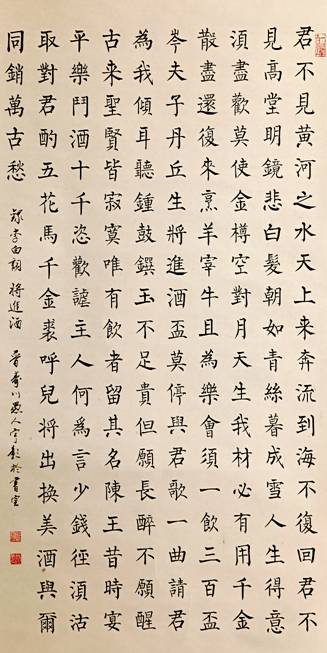 君不見黃河之水天上來奔流到海不復回君不
見高堂明鏡悲白髮朝如青絲暮成雪人生得意
湏盡歡莫使金樽空對月天生我材必有用千金
散盡還復來烹羊宰牛且為樂會須一飲三百盃
岑夫子丹丘生將進酒盃莫停與君歌一曲請君
為我傾耳聽鍾鼓饌玉不足貴但願長醉不願醒
古来聖賢皆寂寞唯有飲者留其名陳王昔時宴
平樂鬥酒十千恣歡謔主人何為言少錢徑湏沽
取對君酌五花馬千金裘呼兒將出換美酒與爾
同銷萬古愁
錄李白詞將進酒 於書室